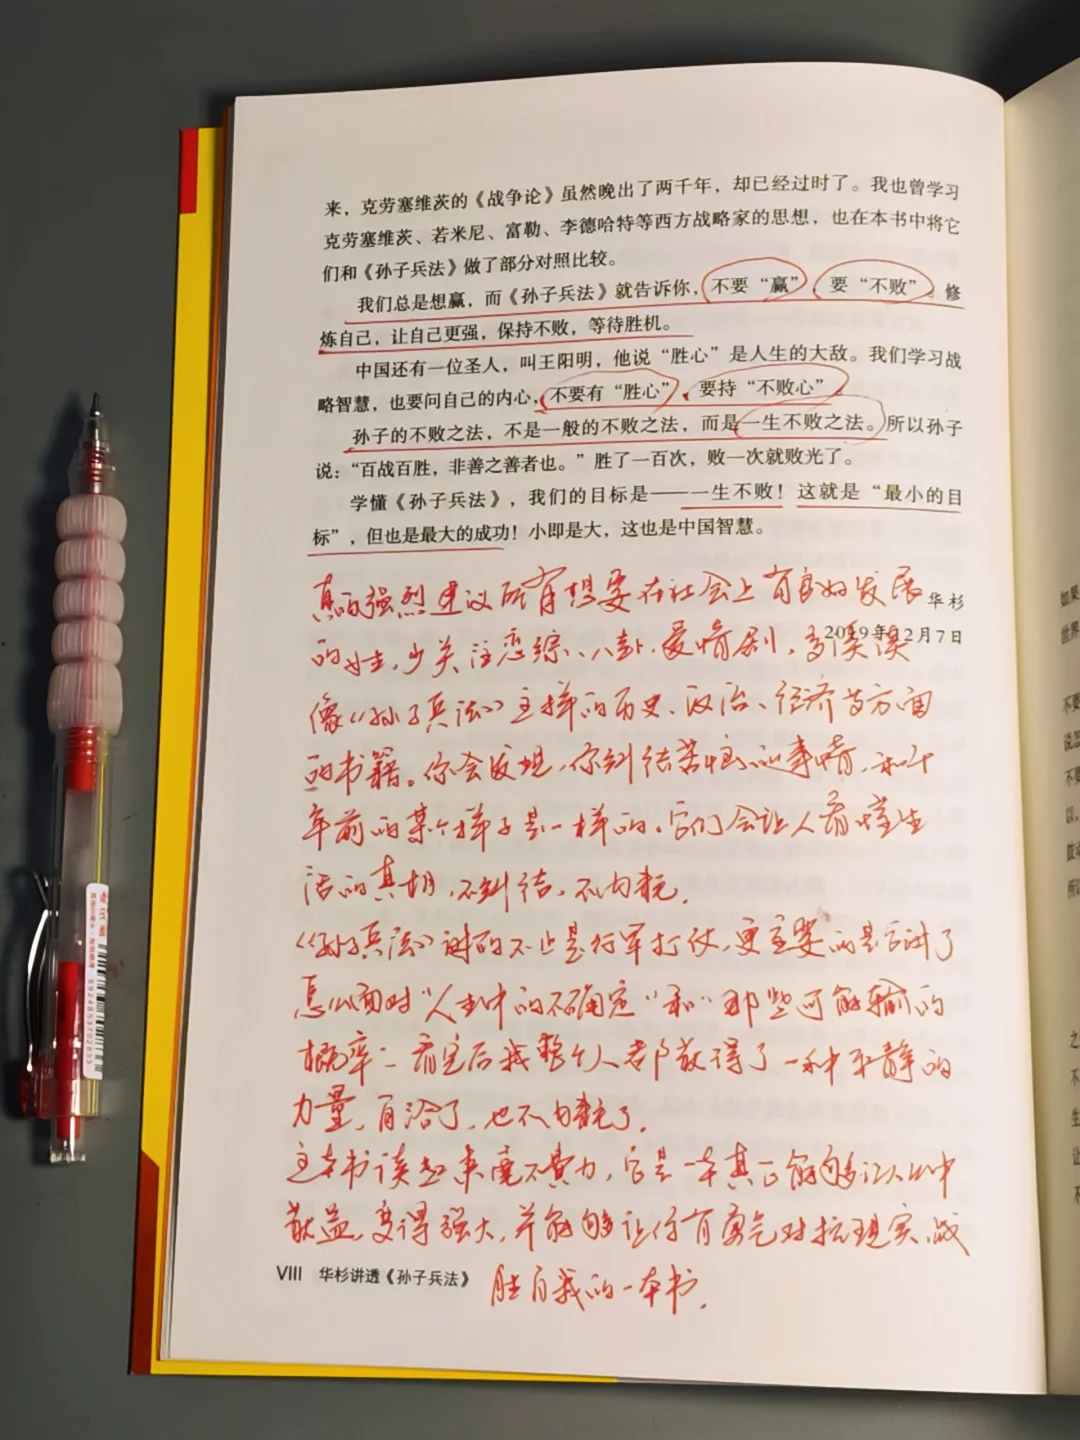 来，克劳塞维茨的《战争论》虽然晚出了两千年，却已经过时了。我也曾学习
克劳塞维茨、若米尼、富勒、李德哈特等西方战略家的思想，也在本书中将它
们和《孙子兵法》做了部分对照比较。
我们总是想赢，而《孙子兵法》就告诉你，不要“赢”，要“不败”。修
炼自己，让自己更强，保持不败，等待胜机。
中国还有一位圣人，叫王阳明，他说“胜心”是人生的大敌。我们学习战
略智慧，也要问自己的内心，不要有“胜心”，要持“不败心”。
孙子的不败之法，不是一般的不败之法，而是一生不败之法。所以孙子
说：“百战百胜，非善之善者也。”胜了一百次，败一次就败光了。
学懂《孙子兵法》，我们的目标是——一生不败！这就是“最小的目
标”，但也是最大的成功！小即是大，这也是中国智慧。
华杉
2019年12月7日
真的强烈建议所有想要在社会上有良好发展
的女生，少关注恋综、八卦、爱情剧，多读读
像《孙子兵法》这样的历史、政治、经济等方面
的书籍。你会发现，你纠结苦恼的事情，和千
年前的某个样子是一样的。它们会让人看懂生
活的真相，不纠结，不内耗。
《孙子兵法》讲的不止是行军打仗，更重要的是它讲了
怎么面对“人生中的不确定”和“那些可能输的
概率”看完后我整个人都散得了一种平静的
力量，自洽了，也不内耗了。
这本书读起来毫不费力，它是一本真正能够让人从中
获益，变得强大，并能够让你有勇气对抗现实、战
胜自我的一本书。
VIII 华杉讲透《孙子兵法》
如果
世界
不要
以
所以
之
不
生
让
6924853702833